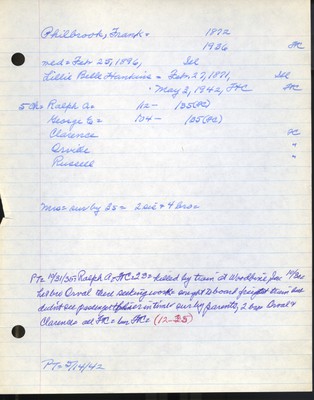 Philbrook, Frank = 1872
1936 FC
wed = Feb 25, 1896, Ill
Lillie Belle Hawkins = Feb. 27, 1871, Ill
May 2, 1942, FC FC
5 Ch = Ralph A = 112 - 135 (FC)
George E = 134 - 135 (FC)
Clarence FC
Orville "
Russell "
Mrs = sur by 2s = 2 sis & 4 bro =
PT = 10/31/35, Ralph A, FC = 23 = killed by train at Woodbine, Ia =
his bro Orval there seeking work = sought to board freight train but
did not see passenger sur by parents, 2 bro Orval &
Clarence all FC = bur FC = (12-35)
PT = 5/14/42